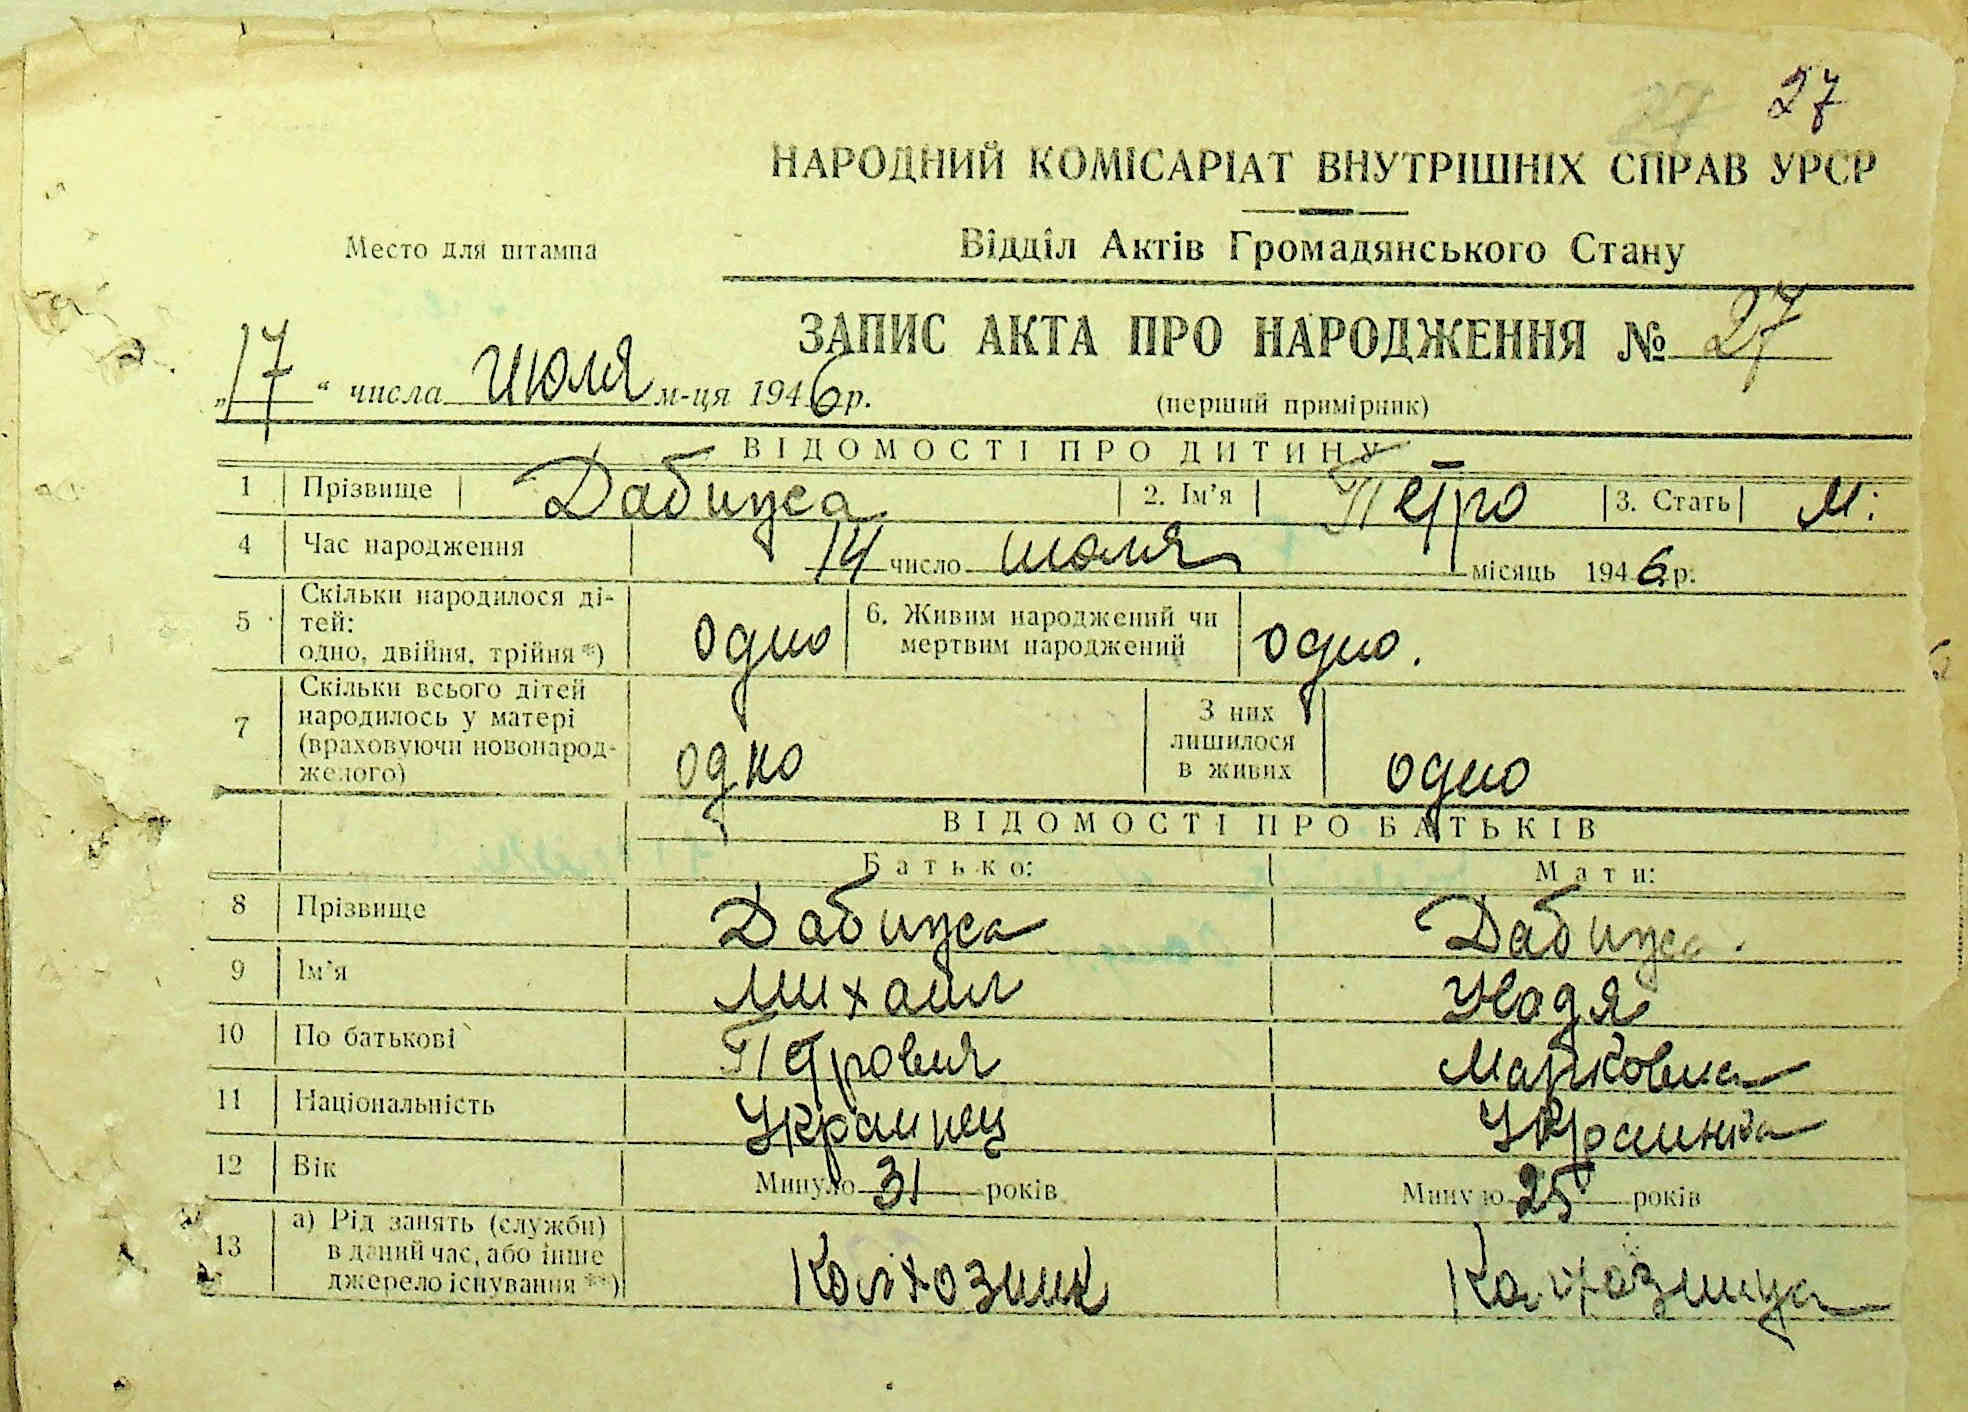 27
27
НАРОДНИЙ КОМІСАРІАТ ВНУТРІШНІХ СПРАВ УРСР
Место для штампа
Відділ Актів Громадянського Стану
ЗАПИС АКТА ПРО НАРОДЖЕННЯ № 27
„17“ числа июля м-ця 1946 р.
(перший примірник)
ВІДОМОСТІ ПРО ДИТИНУ
1 Прізвище Дабижа 2. Ім’я Петро 3. Стать м:
4 Час народження 14 число июля місяць 1946 р.
5 Скільки народилося ді-
тей:
одно, двійня, трійня *) одно 6. Живим народжений чи
мертвим народжений одно.
7 Скільки всього дітей
народилось у матері
(враховуючи новонарод-
желого) одно З них
лишилося
в живих одно
ВІДОМОСТІ ПРО БАТЬКІВ
Батько: Мати:
8 Прізвище Дабижа Дабижа.
9 Ім’я Михаил Надя
10 По батькові Петровия Марковна
11 Національність Украинец Украинка
12 Вік Минуло 31 років Минуло 25 років
13 а) Рід занять (служби)
в даний час, або інше
джерело існування **) Колхозник Колхозница